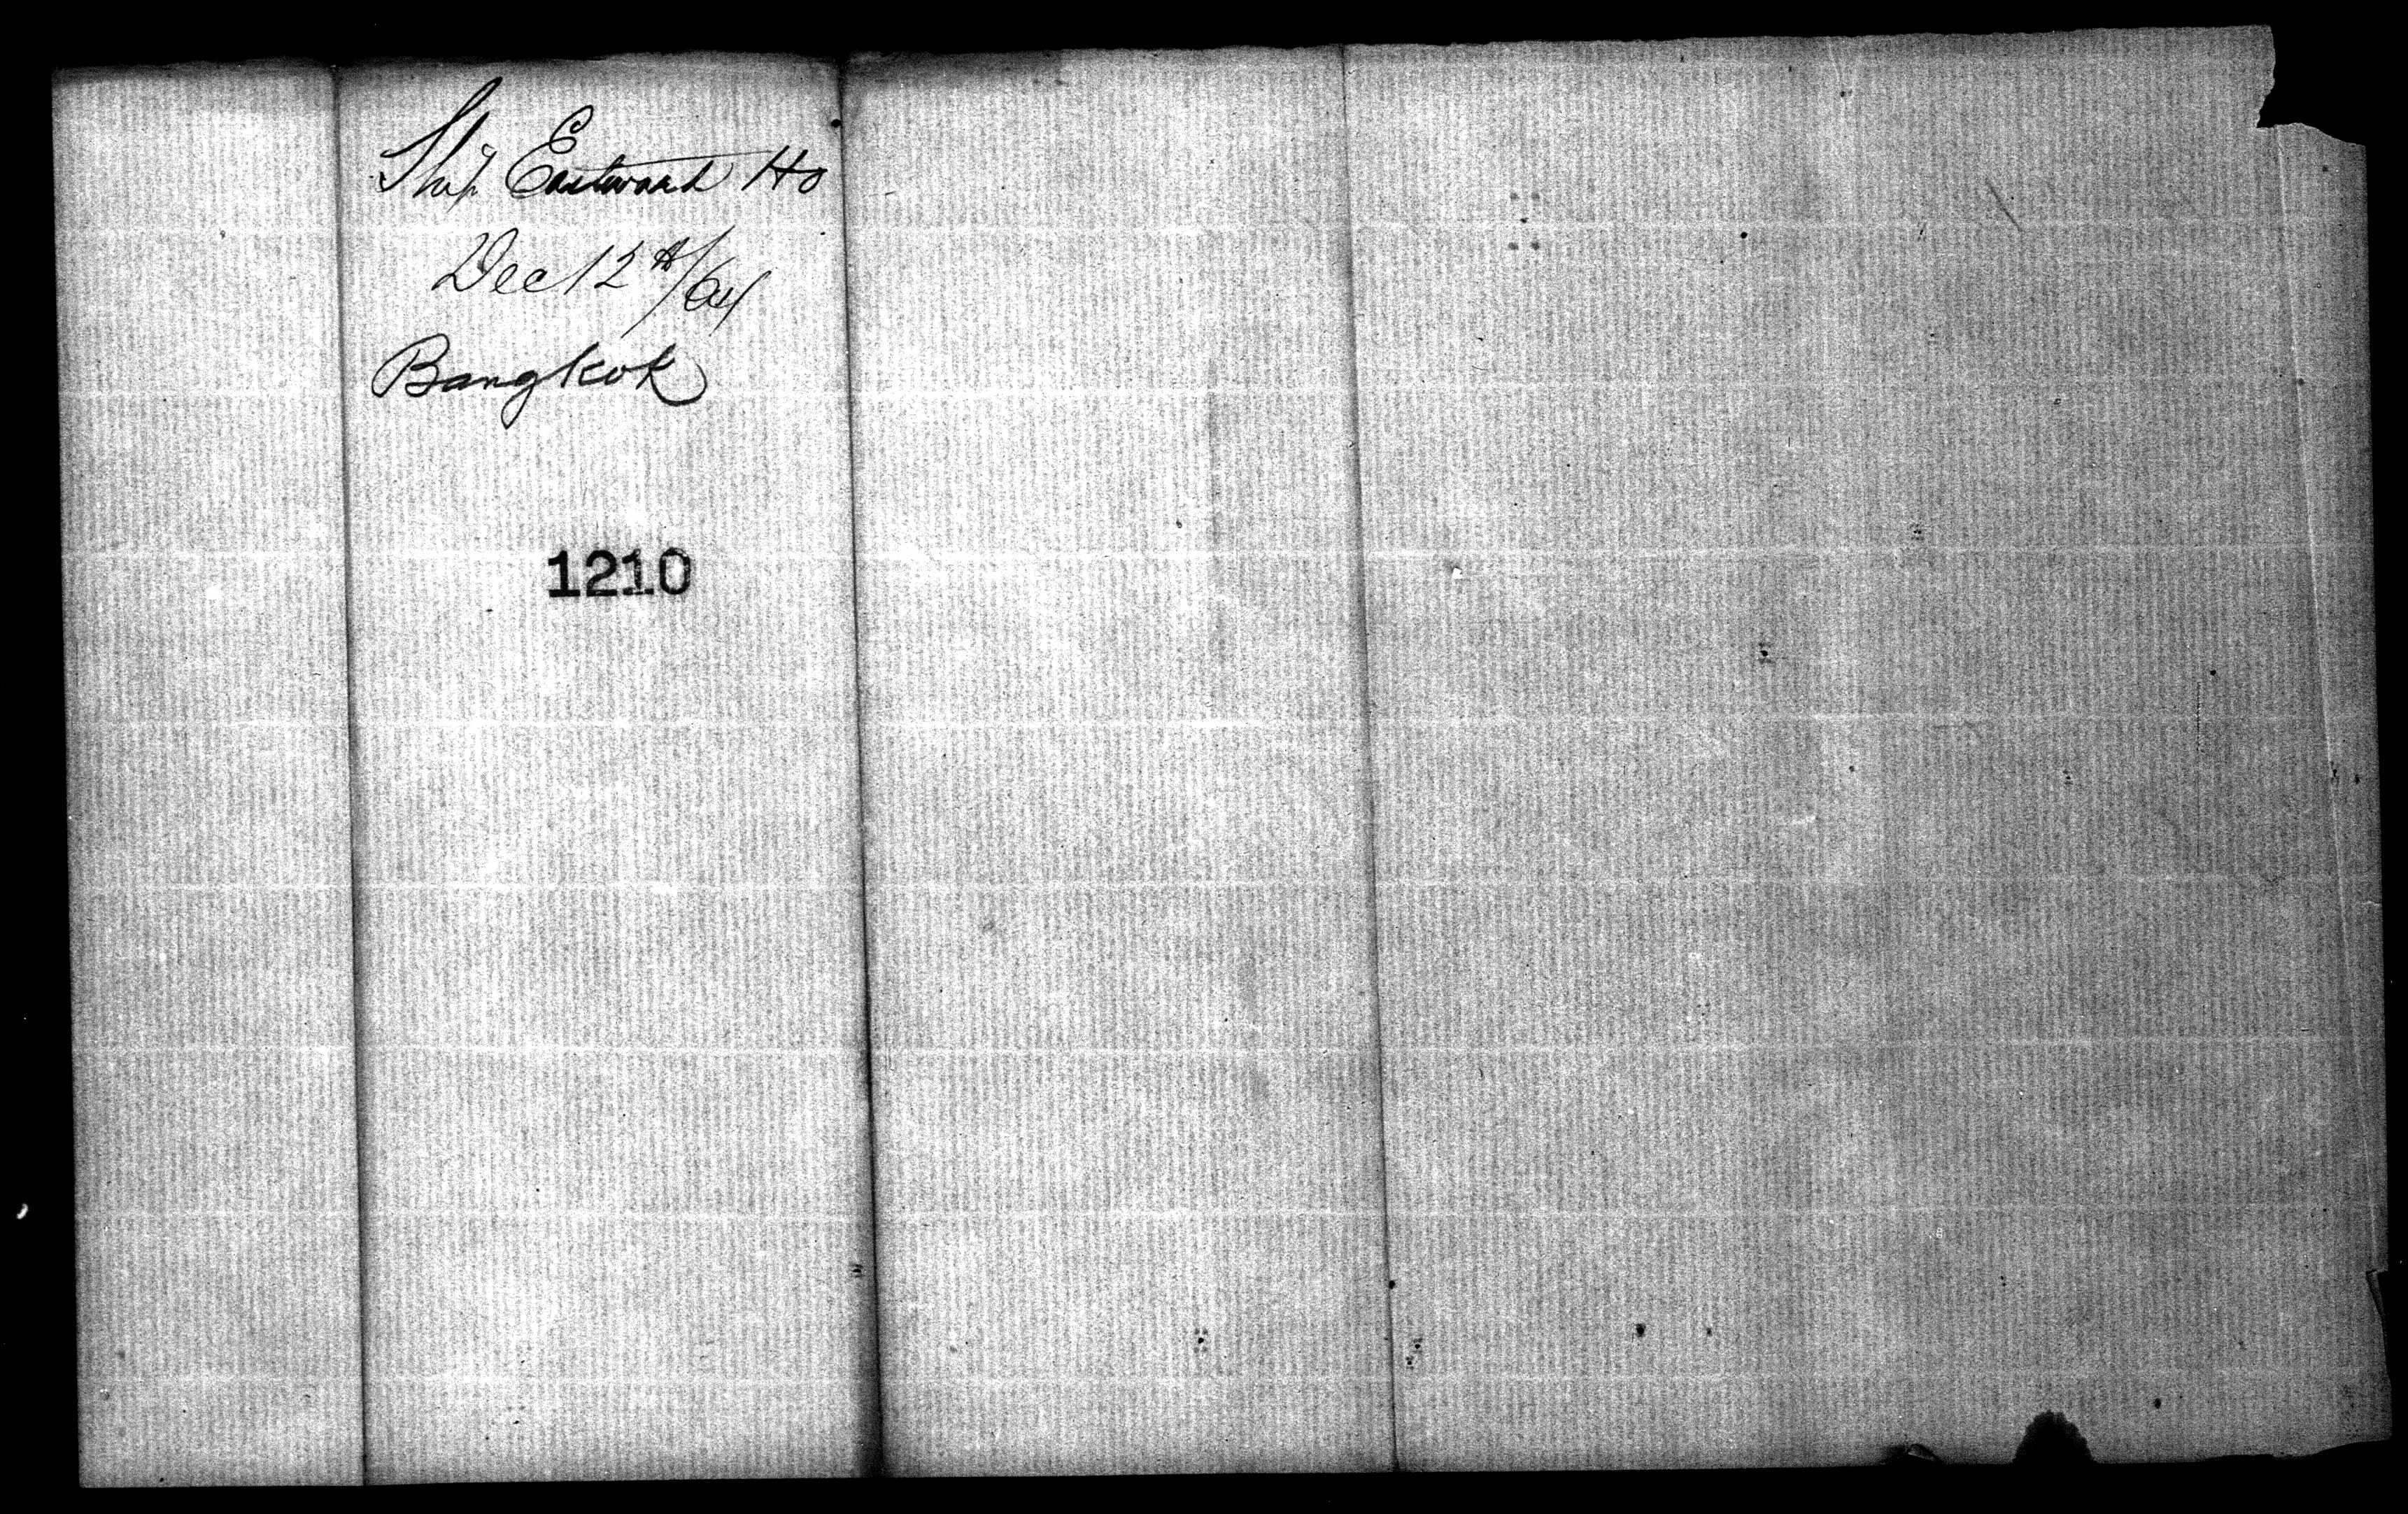 Ship Eastward Ho
Dec 12th/64
Bangkok
1210